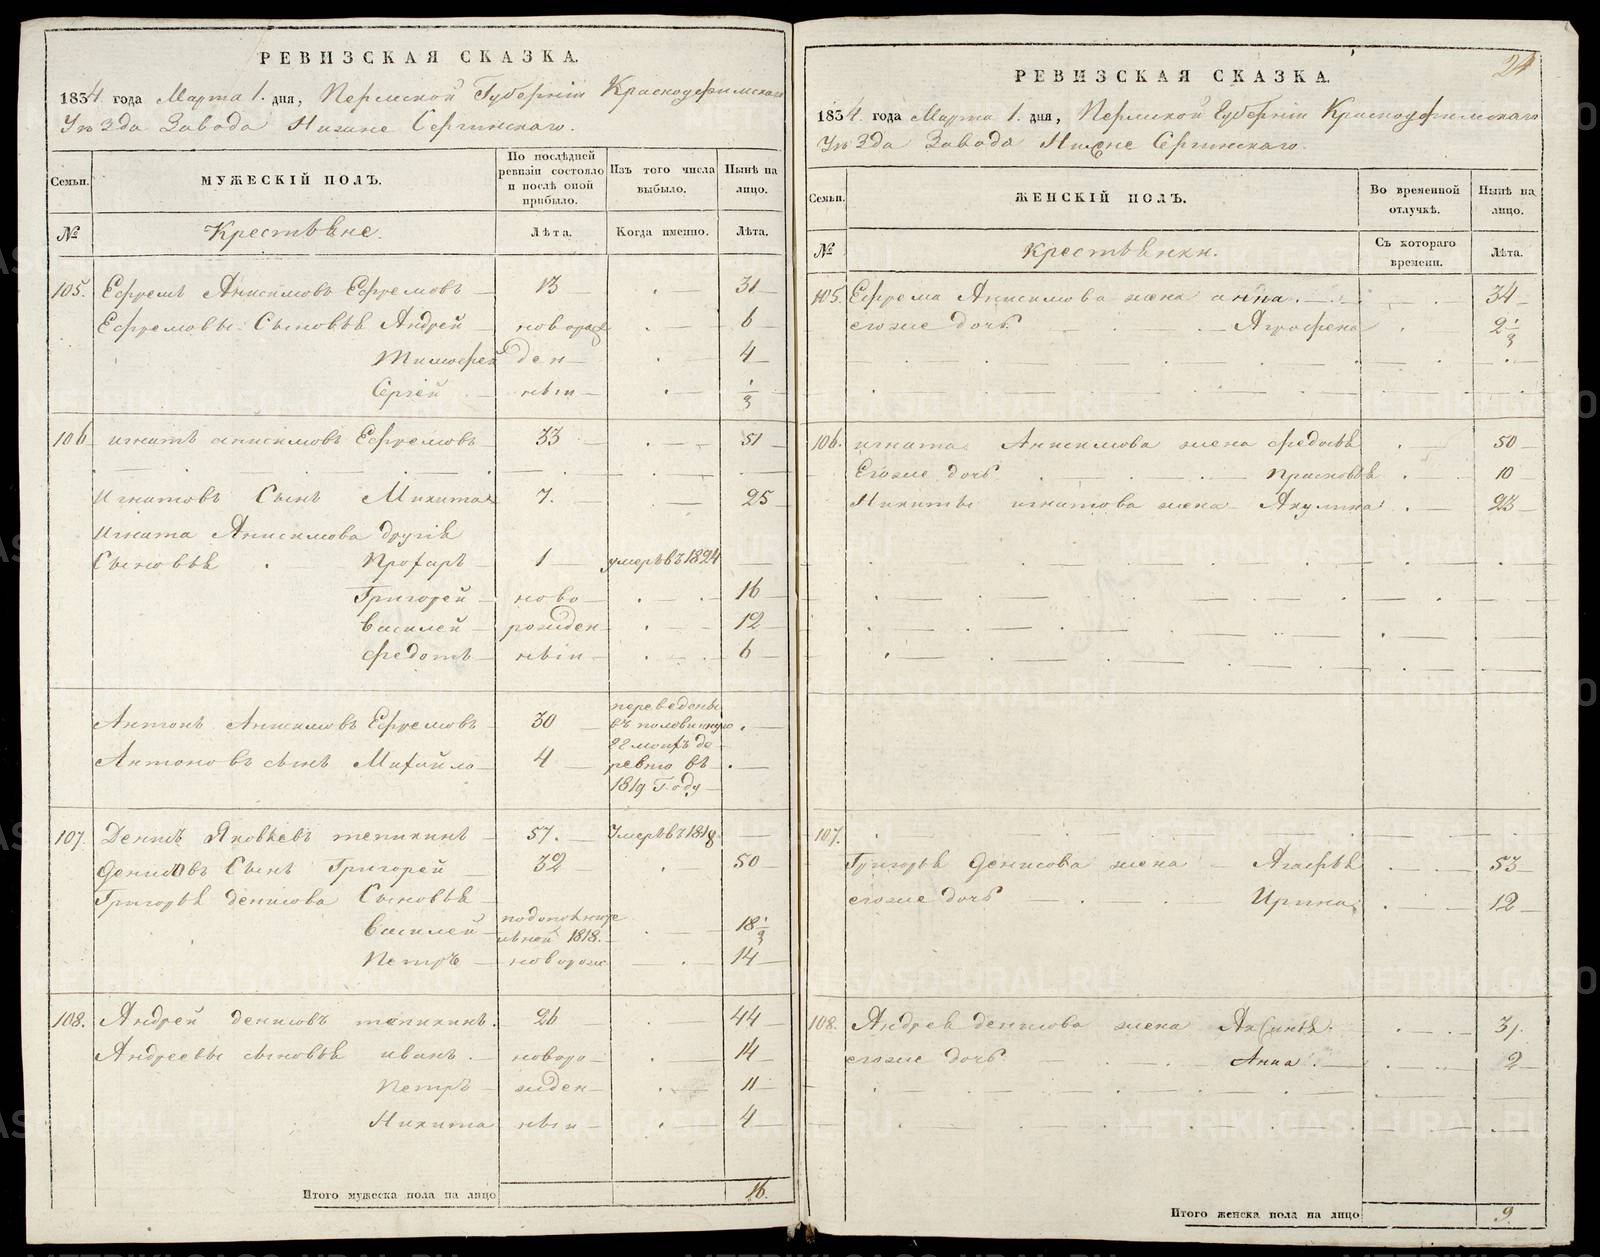 РЕВИЗСКАЯ СКАЗКА.
1834 года Марта 1. дня, Пермской Губернiи Красноуфимскаго
Уѣзда Завода Нижне Сергинскаго.
Семьи. МУЖЕСКIЙ ПОЛЪ. По послѣдней ревизiи состояло и послѣ оной прибыло. Изъ того числа выбыло. Нынѣ на лицо.
№ Крестьяне. Лѣта. Когда именно. Лѣта.
105. Ефремъ Анисимовъ Ефремовъ 13 31
Ефремовы Сыновья Андрей новорож 6
Тимофей ден 4
Сергiй ныи 1/3
106 игнатъ анисимовъ Ефремовъ 33 51
Игнатовъ Сынъ Микита 7. 25
Игната Анисимова другiе
Сыновья Профиръ 1 умеръ въ 1824
Григорей ново 16
Василей рожден 12
Федотъ ныи 6
Антонъ Анисимовъ Ефремовъ 30 переведены
въ половинную
Антоновъ сынъ Михайло 4 де
ревню въ
1819 Году
107. Денисъ Яковлевъ тепикинъ 57. Умеръ въ 1818
Денисовъ Сынъ Григорей 32 50
Григорья денисова Сыновья
Василей 1818. 18 1/3
Петръ новорож 14
108. Андрей денисовъ тепикинъ. 26 44
Андреевы сыновья иванъ. новоро 14
Петръ жден 11
Никита ныи 4
Итого мужеска пола на лицо 16.
24
РЕВИЗСКАЯ СКАЗКА.
1834. года Марта 1. дня, Пермской Губернiи Красноуфимскаго
Уѣзда Завода Нижне Сергинскаго.
Семьи. ЖЕНСКIЙ ПОЛЪ. Во временной отлучкѣ. Нынѣ на лицо.
№ Крестьянки. Съ котораго времени. Лѣта.
105. Ефрема Анисимова жена анна. 34
егоже дочь Агрофена 2 1/3
106. игната Анисимова жена федосья 50
Егоже дочь Прасковья 10
Никиты игнатова жена Акулина 23
107.
Григорья Денисова жена Агафья 53
егоже дочь Ирина 12
108. Андрея денисова жена Аксинья. 37.
егоже дочь Анна. 2
Итого женска пола на лицо 9.
METRIKI.GASO-URAL.RU